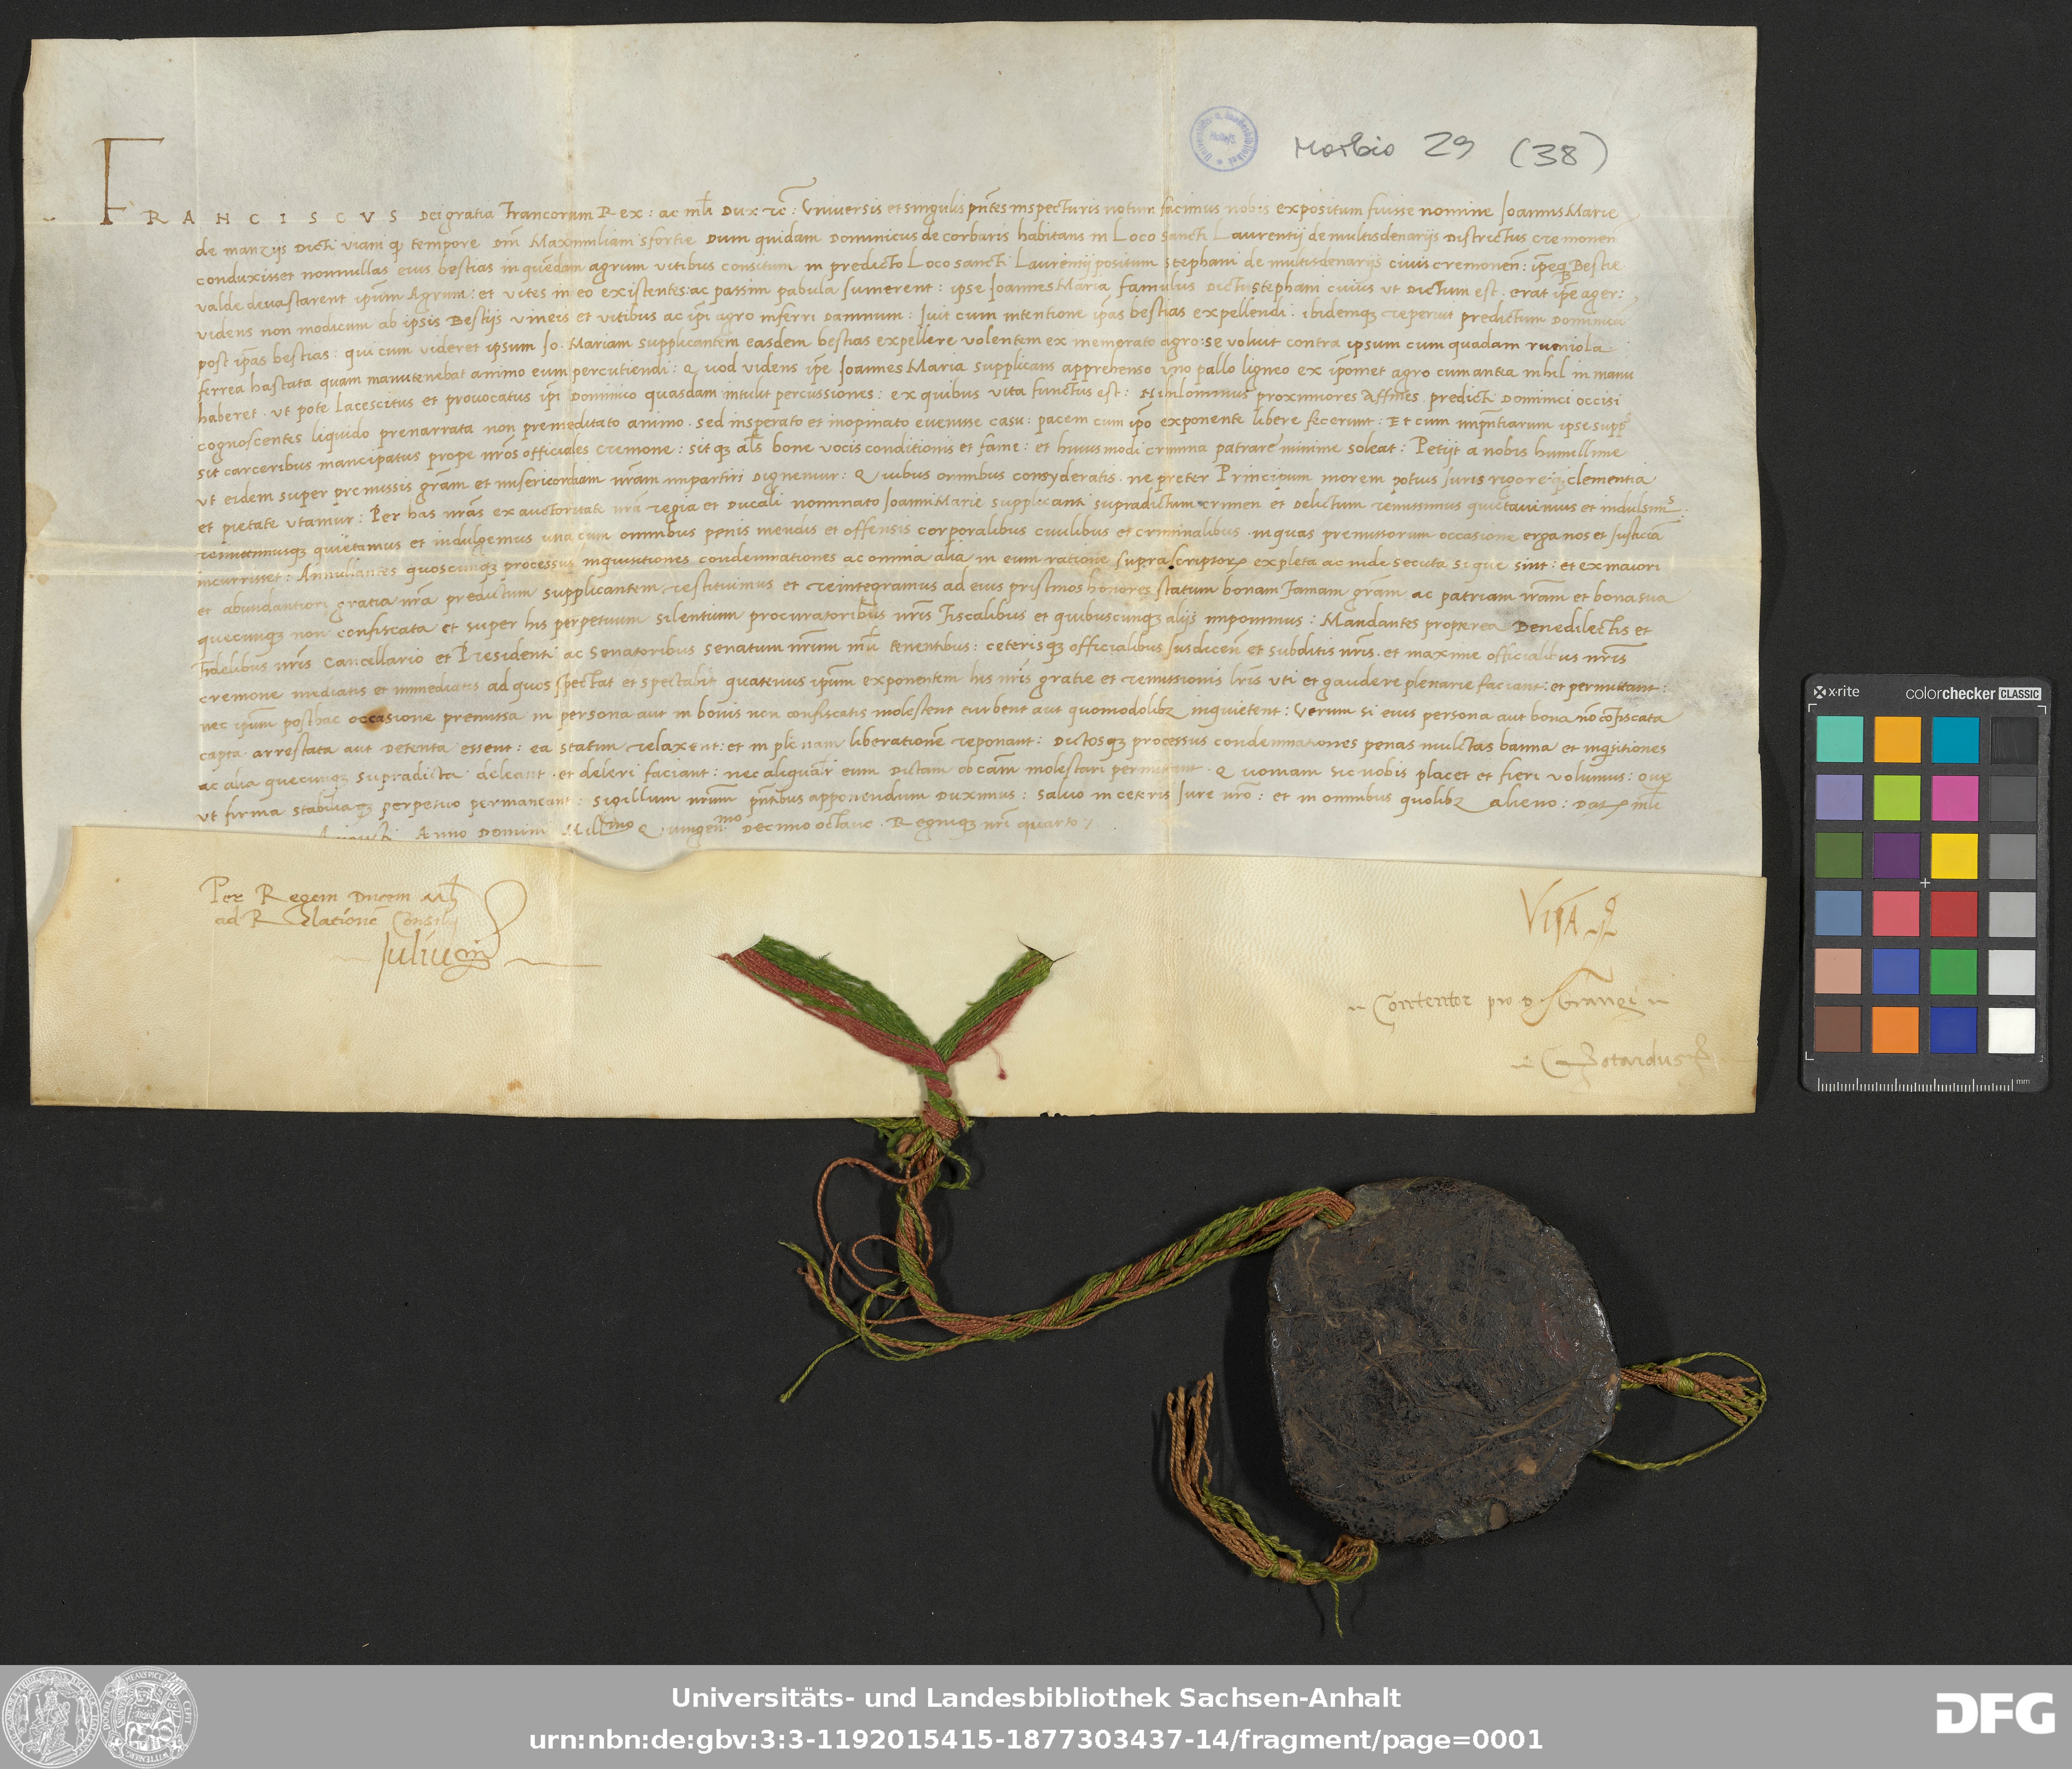 Morbio 29 (38)
FRANCISCVS Dei gratia Francorum Rex: ac mli Dux rc̃: Universis et singulis pñtes inspecturis notum facimus nobis expositum fuisse nomine Joannis Marie
de manzijs dicti viani qp tempore Dm̃ Maximiliani sfortie Dum quidam Dominicus de corbaris habitans in Loco sancti Laurentij de multisdenarijs Districtus cremonen̄
conduxisset nonnullas eius bestias in quēdam agrum vitibus consitum in predicto Loco sancti Laurentij positum stephani de multisdenarijs civis cremonen̄: ip̄eq Bestie
valde devastarent ip̄um Agrum: et vites in eo existentes: ac passim pabula sumerent: ipse Joannes Maria famulus Dicti stephani cuius ut Dictum est. erat ip̄e ager:
videns non modicum ab ipsis Bestijs vineis et vitibus ac ip̄i agro inferri Damnum: Ivit cum intentione ip̄as bestias expellendi. ibidemqʒ reperiit predictum Dominicū
post ip̄as bestias: qui cum videret ipsum Jo. Mariam supplicantem easdem bestias expellere volentem ex memorato agro: se voluit contra ipsum cum quadam runiola
ferrea hastata quam manutenebat animo eum percutiendi: Quod videns ip̄e Joannes Maria supplicans apprehenso uno pallo ligneo ex ip̄omet agro cum antea nihil in manu
haberet. ut pote lacescitus et provocatus ip̄i Dominico quasdam intulit percussiones: ex quibus vita functus est: Nihilominus proximiores Affines predicti Dominici occisi
cognoscentes liquido prenarrata non premeditato animo. sed insperato et inopinato evenisse casu: pacem cum ip̄o exponente libere fecerunt: Et cum imp̄ntiarum ipse supp
sit carceribus mancipatus prope nr̄os officiales cremone: sit qʒ al̄s bone vocis conditionis et fame: et huiusmodi crimina patrare minime soleat: Petijt a nobis humillime
ut eidem super premissis gr̄am et misericordiam nr̄am impartiri Dignemur: Quibus omnibus consyderatis. ne preter Principum morem potius Juris rigore qʒ clementia
et pietate utamur: Per has nr̄as ex auctoritate nr̄a regia et Ducali nominato Joanni Marie supplicanti supradictum crimen et Delictum remissimus quietavimus et indulsims
remittimusqʒ quietamus et indulgemus una cum omnibus penis mendis et offensis corporalibus civilibus et criminalibus in quas premissorum occasione erga nos et Justiciā
incurrisset: Annullantes quoscunqʒ processus inquisitiones condemnationes ac omnia alia in eum ratione suprascriptor expleta ac inde secuta si que sint: et ex maiori
et abundantiori gratia nr̄a predictum supplicantem restituimus et reintegramus ad eius pristinos honores statum bonam famam gr̄am ac patriam nr̄am et bona sua
quecunqʒ non confiscata et super his perpetuum silentium procuratoribus nr̄is Fiscalibus et quibuscunqʒ alijs imponimus: Mandantes propterea Denedilectis et
Fidelibus nr̄is Cancellario et Presidenti ac Senatoribus Senatum nr̄um mli tenentibus: ceterisqʒ officialibus Jusdicen̄ et subditis nr̄is. et maxime officialibus nr̄is
cremone mediatis et immediatis ad quos spectat et spectabit quatenus ip̄um exponentem his nr̄is gratie et remissionis lr̄is uti et gaudere plenarie faciant: et permittant:
nec ip̄um posthac occasione premissa in persona aut in bonis non confiscatis molestent turbent aut quomodolibʒ inquietent: Verum si eius persona aut bona nō cōfiscata
capta. arrestata aut Detenta essent: ea statim relaxent: et in plenam liberationē reponant: Dictosqʒ processus condemnationes penas mulctas banna et inqsitiones
ac alia quecunqʒ supradicta deleant. et deleri faciant: nec aliqualr eum Dictam ob cām molestari permittant. Quoniam sic nobis placet et fieri volumus: Que
ut firma stabiliaqʒ perpetuo permaneant: Sigillum nr̄um pn̄tibus apponendum Duximus: Salvo in ceteris Jure nr̄o: et in omnibus quolibʒ alieno: Dat mli
Augusti Anno Domini Millmo Quingenmo Decimo octavo. Regniqʒ nr̄i quarto
Per Regem Ducem Mli
ad Relationē Consilij
Juliuem
VISA
Contentor pro D
Gotardus
x-rite colorchecker CLASSIC
mm
Universitäts- und Landesbibliothek Sachsen-Anhalt
urn:nbn:de:gbv:3:3-1192015415-1877303437-14/fragment/page=0001
DFG